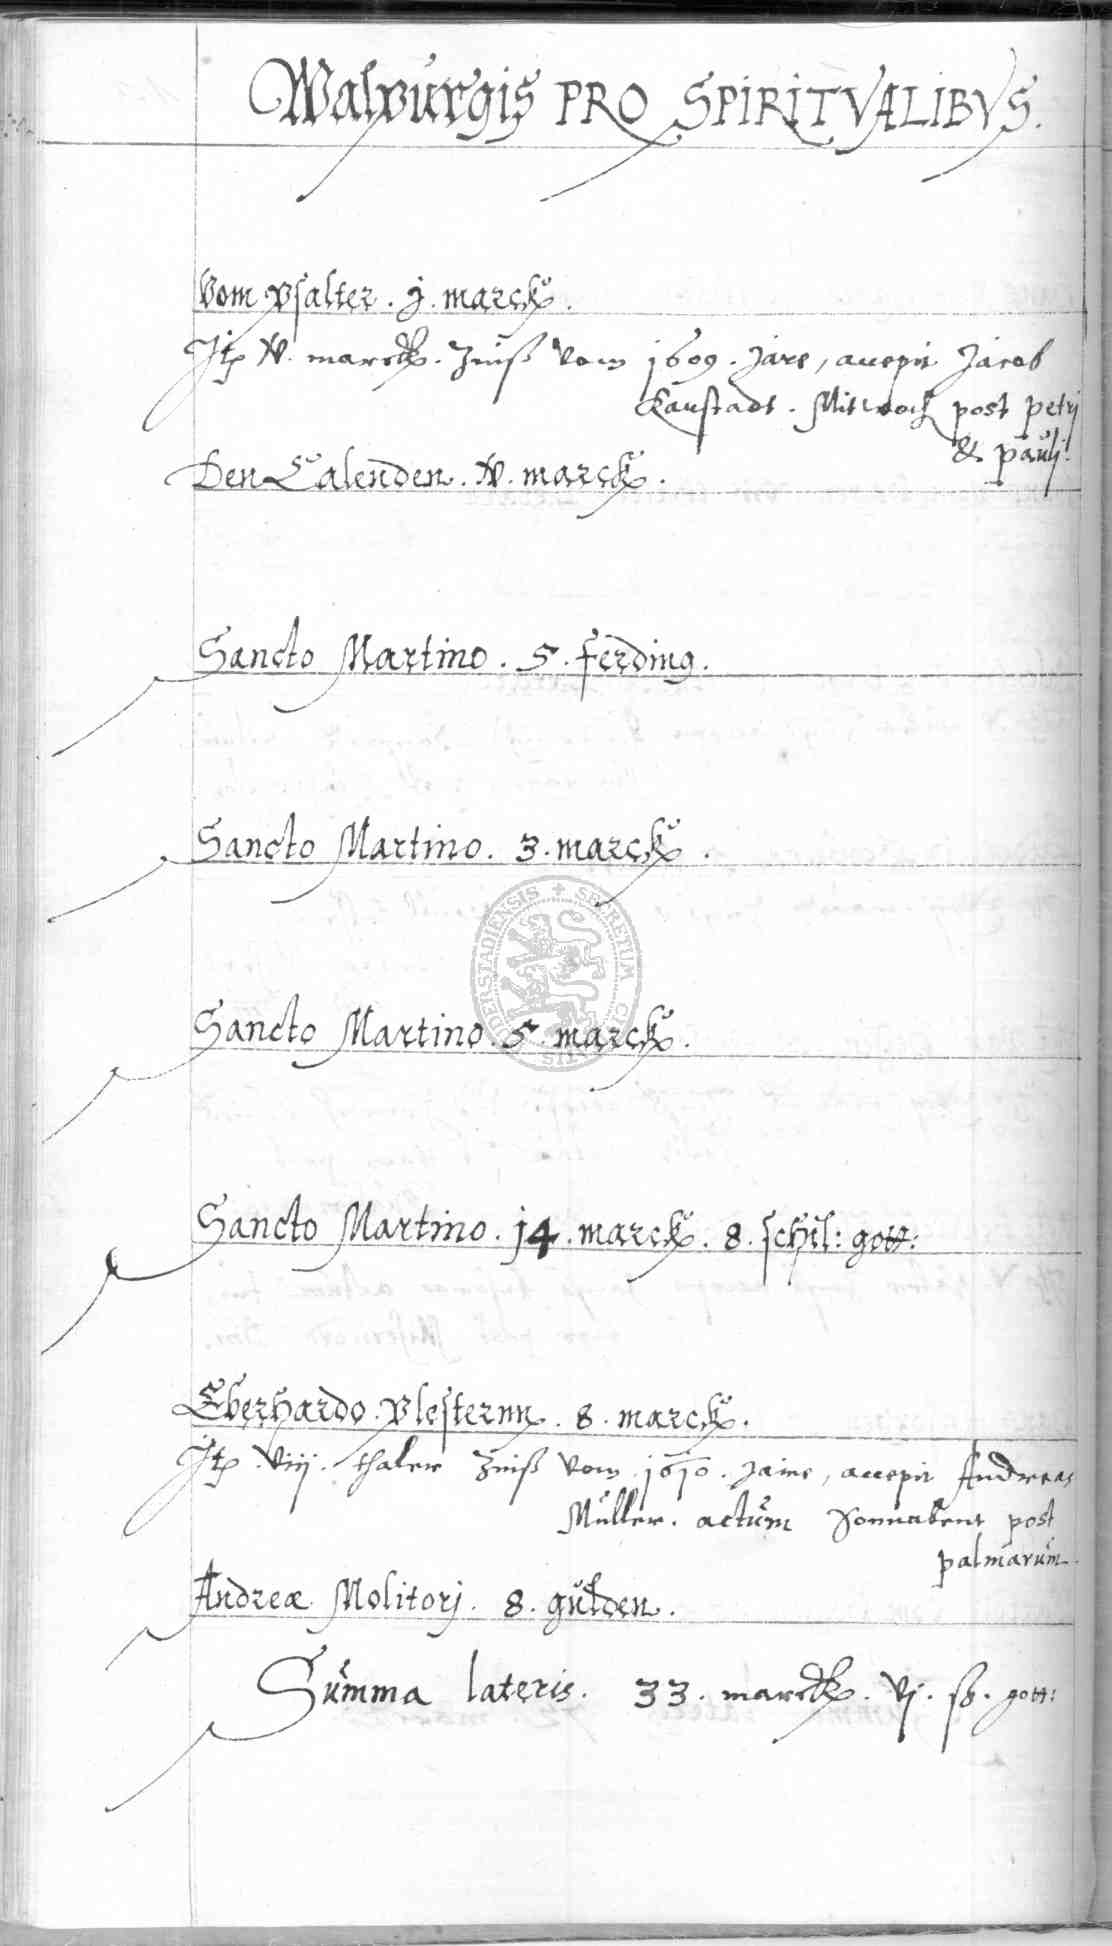 Walpurgis PRO SPIRITVALIBVS.
Vom psalter . j . marck .
Jtē iv . marck . Zinß vom 1609 . Jare , accepit Jacob
Kaustadt . Mitwoch post petri
& pauli .
Den Calenden . iv . marck .
Sancto Martino . 5 . ferding .
Sancto Martino . 3 . marck .
Sancto Martino . 5 . marck .
Sancto Martino . 14 . marck . 8 . schil : gott :
Eberhardo . Plesternn . 8 . marck .
Jtē . viij . thaler Zinß vom . 1610 . Jaire , accepit Andreas
Müller . actum Sonnabent post
palmarum .
Andreæ Molitorj . 8 . gulden .
Summa lateris . 33 . marck . vj . ß . gott :
SECRETUM
DERSTADIENSIS